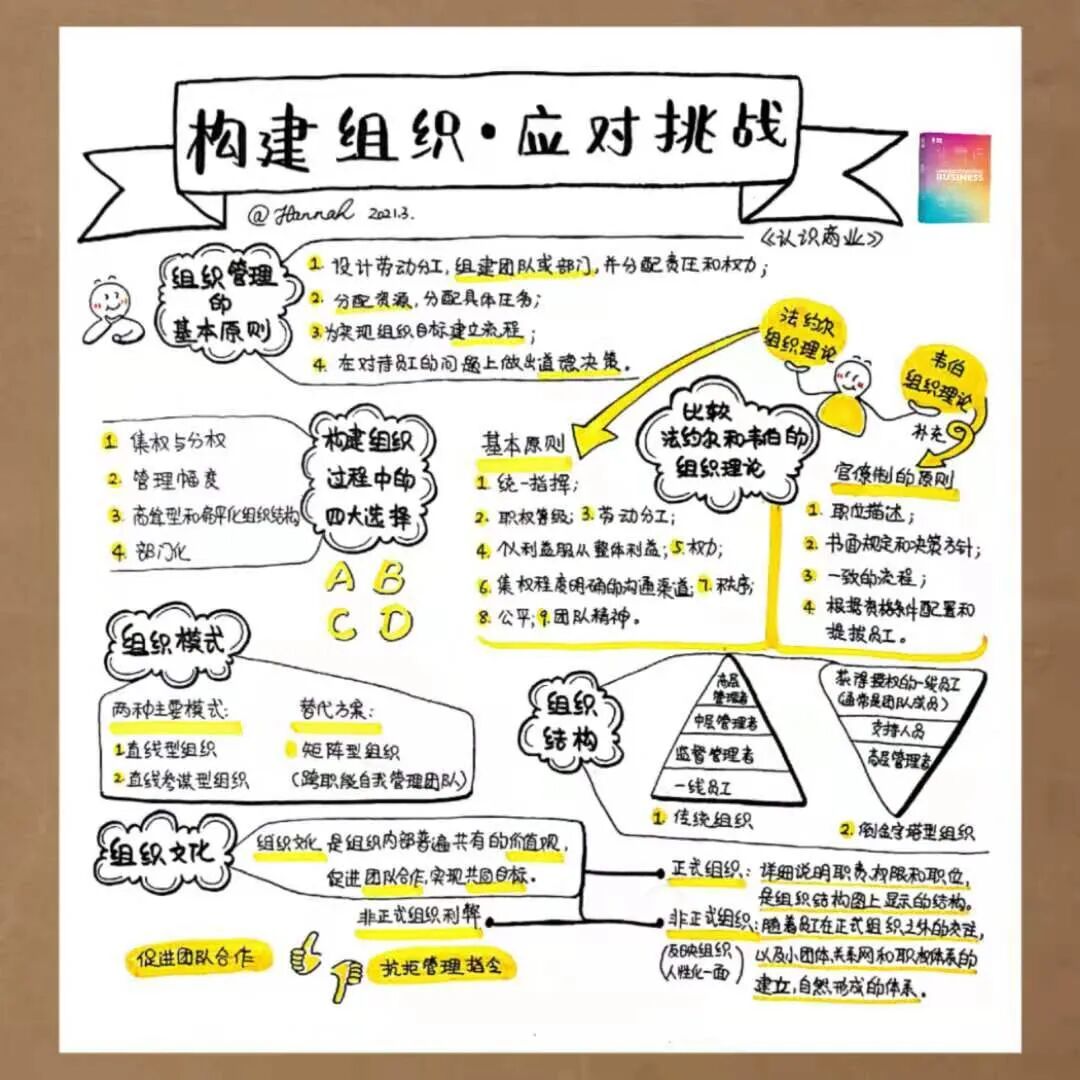 构建组织·应对挑战
@Hannah 2021.3.
BUSINESS
《认识商业》
组织管理
的
基本原则
1. 设计劳动分工,组建团队或部门,并分配责任和权力;
2. 分配资源,分配具体任务;
3. 为实现组织目标建立流程;
4. 在对待员工的问题上做出道德决策。
构建组织
过程中的
四大选择
1 集权与分权
2. 管理幅度
3. 高耸型和扁平化组织结构
4. 部门化
A B
C D
法约尔
组织理论
韦伯
组织理论
补充
比较
法约尔和韦伯的
组织理论
基本原则
1. 统一指挥;
2. 职权等级; 3. 劳动分工;
4. 个人利益服从整体利益; 5. 权力;
6. 集权程度明确的沟通渠道; 7. 秩序;
8. 公平; 9. 团队精神。
官僚制的原则
1. 职位描述;
2. 书面规定和决策方针;
3. 一致的流程;
4. 根据资格条件配置和
提拔员工。
组织模式
两种主要模式:
1 直线型组织
2 直线参谋型组织
替代方案:
矩阵型组织
(跨职能自我管理团队)
组织
结构
高层
管理者
中层管理者
监督管理者
一线员工
1. 传统组织
获得授权的一线员工
(通常是团队成员)
支持人员
高层管理者
2. 倒金字塔型组织
组织文化
组织文化 是组织内部普遍共有的价值观,
促进团队合作,实现共同目标。
非正式组织利弊
促进团队合作
抗拒管理指令
正式组织: 详细说明职责、权限和职位,
是组织结构图上显示的结构。
非正式组织: 随着员工在正式组织之外的交往,
(反映组织
人性化一面)
以及小团体、关系网和职权体系的
建立,自然形成的体系。